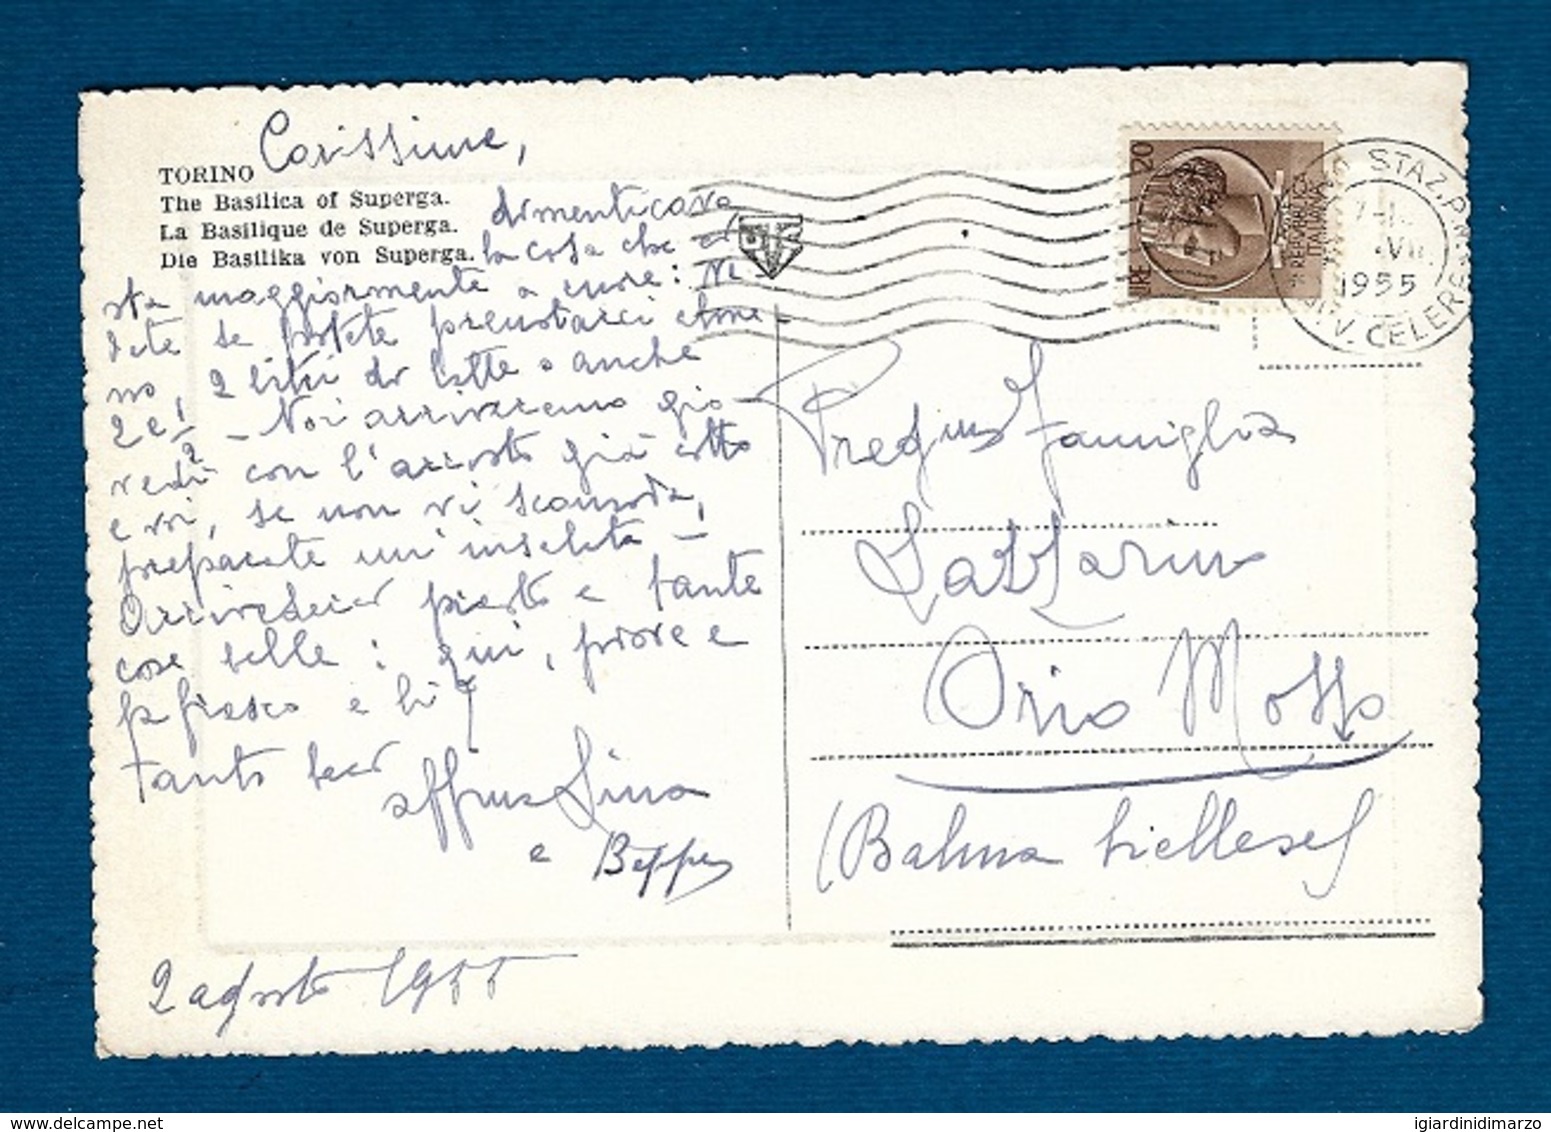 Carissime,
TORINO
The Basilica of Superga.
La Basilique de Superga.
Die Basilika von Superga.
dimenticavo
la cosa che ci
sta maggiormente a cuore: Ve-
dete se potete prenotarci alme-
no, 2 litri di latte o anche
2 e 1/2 - Noi arriveremo gio-
vedì con l'arrosto già cotto
e voi, se non vi scomoda,
preparate un'insalata -
Arrivederci presto e tante
cose belle: qui, piove e
fa fresco e lì?
tanti baci
affme Lina
e Beppe
2 agosto 1955
LIRE 20
REPVBBLICA
ITALIANA
STAZ. P.N.
1955
V. CELERE
Pregma Famiglia
Lazzarino
Orio Mosso
(Balma biellese)
igiardinidimarzo